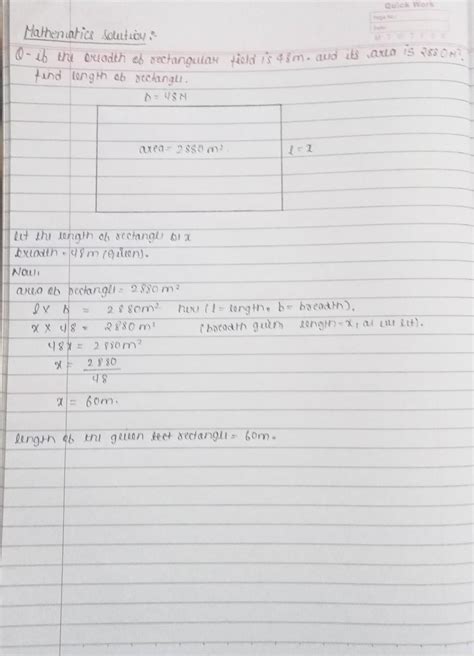 Quick Work
Page No.:
Date:
M T W T F S S
Mathematics Solution:-
Q- if the breadth of rectangular field is 48m. and its area is 2880m².
find length of rectangle.
b = 48M
area = 2880m²
l = x
let the length of rectangle be x
breadth = 48m (Given).
Now,
area of rectangle = 2880m²
l x b = 2880m² here (l = length, b = breadth).
x x 48 = 2880m² (breadth given length = x, as we let).
48x = 2880m²
x = 2880
48
x = 60m.
length of the given rectangle = 60m.